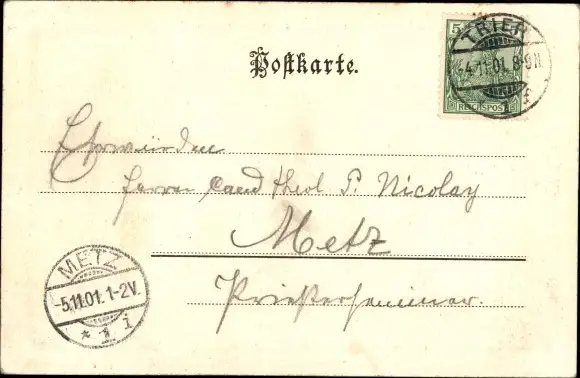 Postkarte.
5
REICHSPOST
TRIER
-4.11.01. 8-9N.
1
Ehrwürden
Herrn Cand theol P. Nicolay
Metz
Priesterseminar.
METZ
-5.11.01. 1-2V.
* 1. i